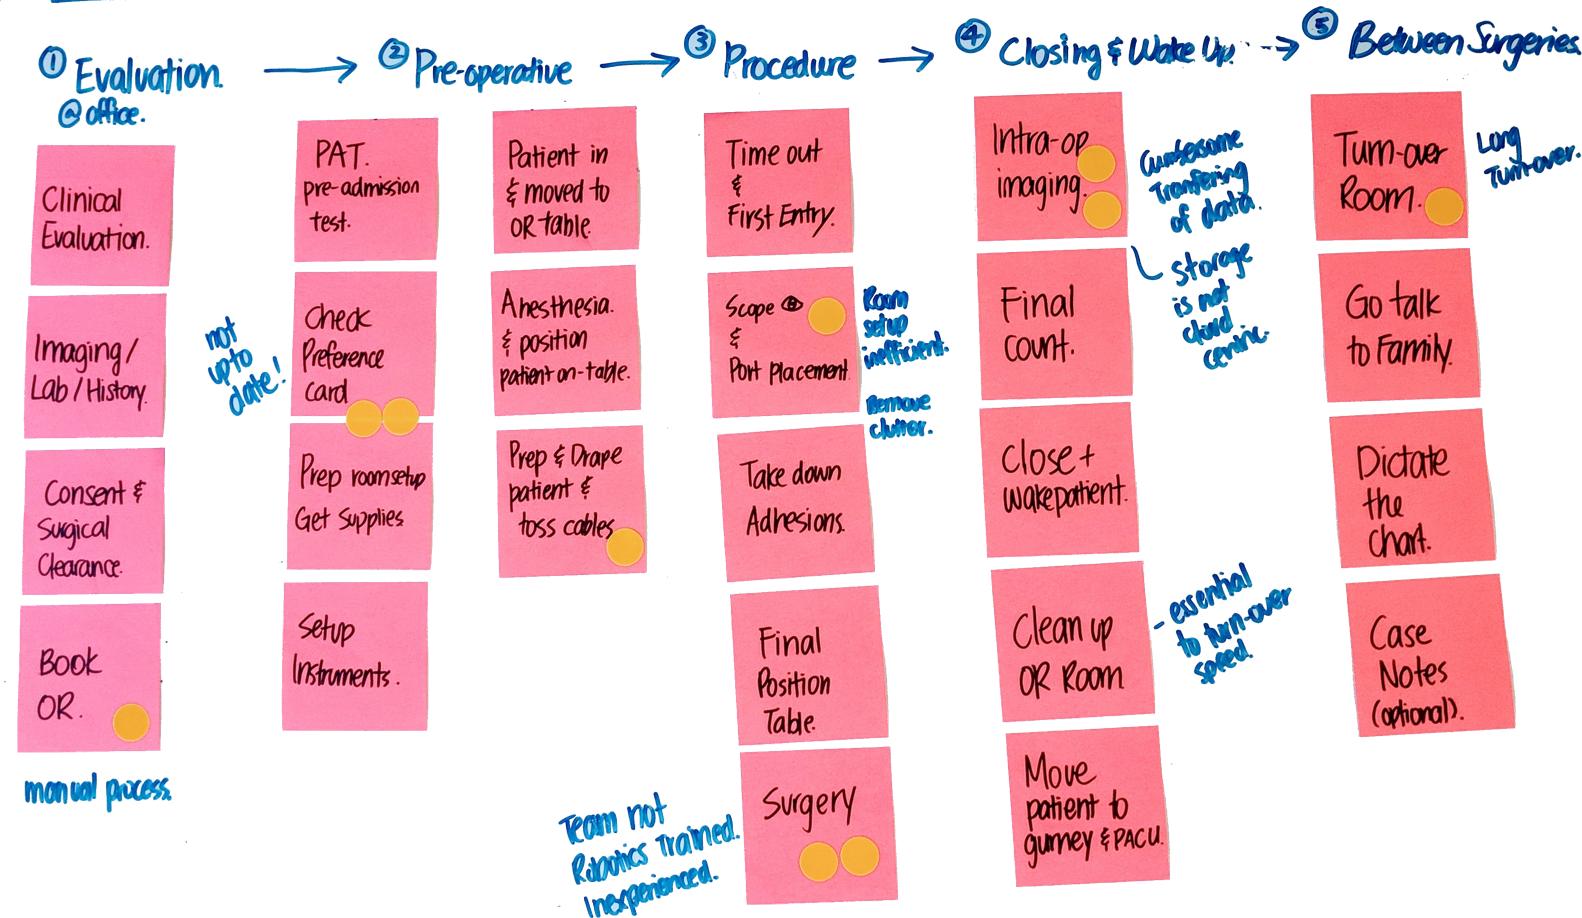 ① Evaluation.
@ office.
Clinical
Evaluation.
Imaging /
Lab / History.
Consent &
Surgical
Clearance.
Book
OR.
manual process.
② Pre-operative
PAT.
pre-admission
test.
not
up to
date!
Check
Preference
card
Prep room setup
Get Supplies
Setup
Instruments.
Patient in
& moved to
OR table.
Anesthesia.
& position
patient on-table.
Prep & Drape
patient &
toss cables
③ Procedure
Time out
&
First Entry.
Scope
&
Port placement
Room
setup
inefficient.
Remove
clutter.
Take down
Adhesions.
Final
Position
Table.
Surgery
Team not
Robotics Trained.
Inexperienced.
④ Closing & Wake Up.
Intra-op
imaging.
Cumbersome
Tranfering
of data.
storage
is not
cloud
centric.
Final
count.
Close +
wake patient.
Clean up
OR Room
- essential
to turn-over
speed.
Move
patient to
gurney & PACU.
⑤ Between Surgeries.
Turn-over
Room.
Long
Turn-over.
Go talk
to Family.
Dictate
the
Chart.
Case
Notes
(optional).